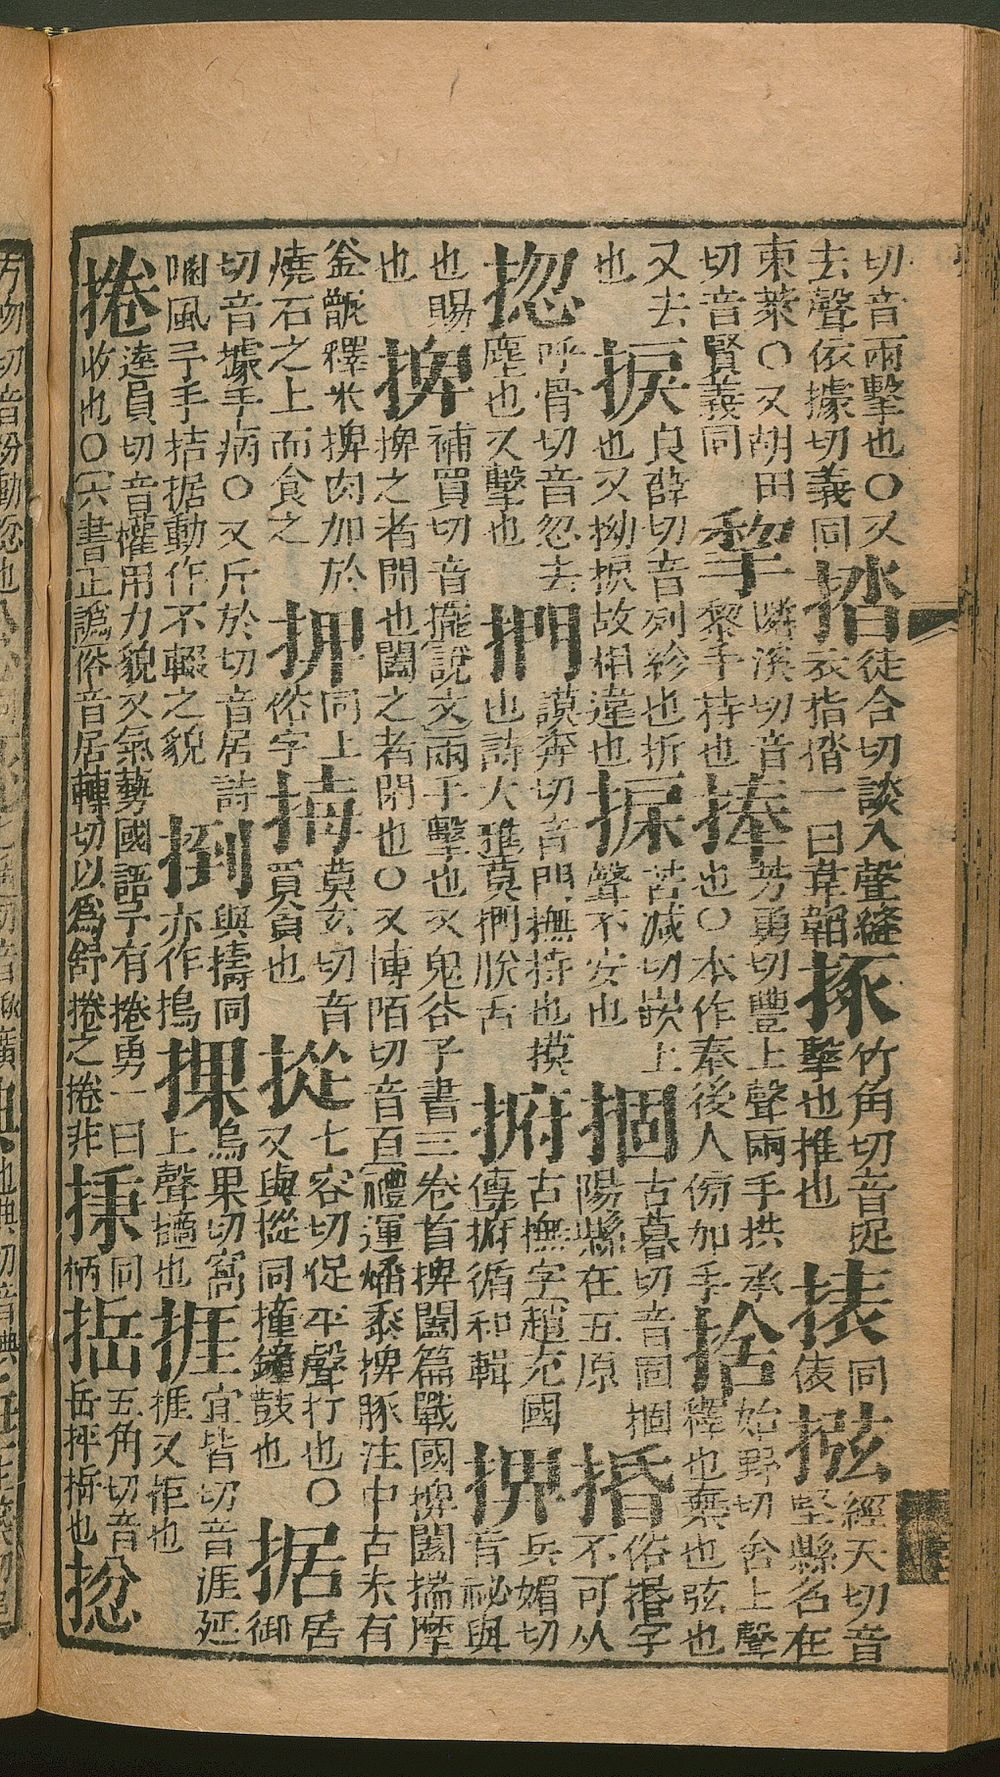 切音兩擊也○又去聲依據切義同 㧺 徒合切談入聲縫衣指㧺一曰韋韜 㧻 竹角切音捉擊也推也 㧼 同俵 經天切音堅縣名在
東萊○又胡田切音賢義同 隣溪切音黎手持也 捧 芳勇切豐上聲兩手拱承也○本作奉後人傍加手 捨 始野切舍上聲釋也棄也弦也
又去也 捩 良薛切音列紾也折也又拗捩故相違也 苦減切嵌上聲不安也 㧽 古暮切音固㧽陽縣在五原 捪 俗字不可从
㧾 呼骨切音忽去塵也又擊也 捫 謨奔切音門撫持也摸也詩大雅莫捫朕舌 捬 古撫字趙充國傳捬循和輯 兵媚切音祕與
也賜也 捭 補買切音擺說文兩手擊也又鬼谷子書三卷首捭闔篇戰國捭闔揣摩捭之者開也闔之者閉也○又博陌切音百禮運燔黍捭豚注中古未有
釜甑釋米捭肉加於燒石之上而食之 同上俗字 挴 莫亥切音買貪也 七容切促平聲打也○又與摐同撞鐘鼓也 据 居御
切音據手病○又斤於切音居詩鴟風予手拮据動作不輟之貌 捯 與擣同亦作搗 捰 烏果切窩上聲 捱 宜皆切音涯延捱又拒也
捲 逵員切音權用力貌又氣勢國語予有捲勇一曰收也○六書正譌俗音居轉切以爲舒捲之捲非 同柄 五角切音岳抨也 捴